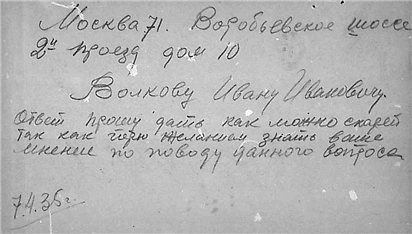 Москва 71. Воробьевское шоссе
2й проезд дом 10
Волкову Ивану Ивановичу.
Ответ прошу дать как можно скорей
так как горю желанием знать ваше
мнение по поводу данного вопроса
7.4.35г